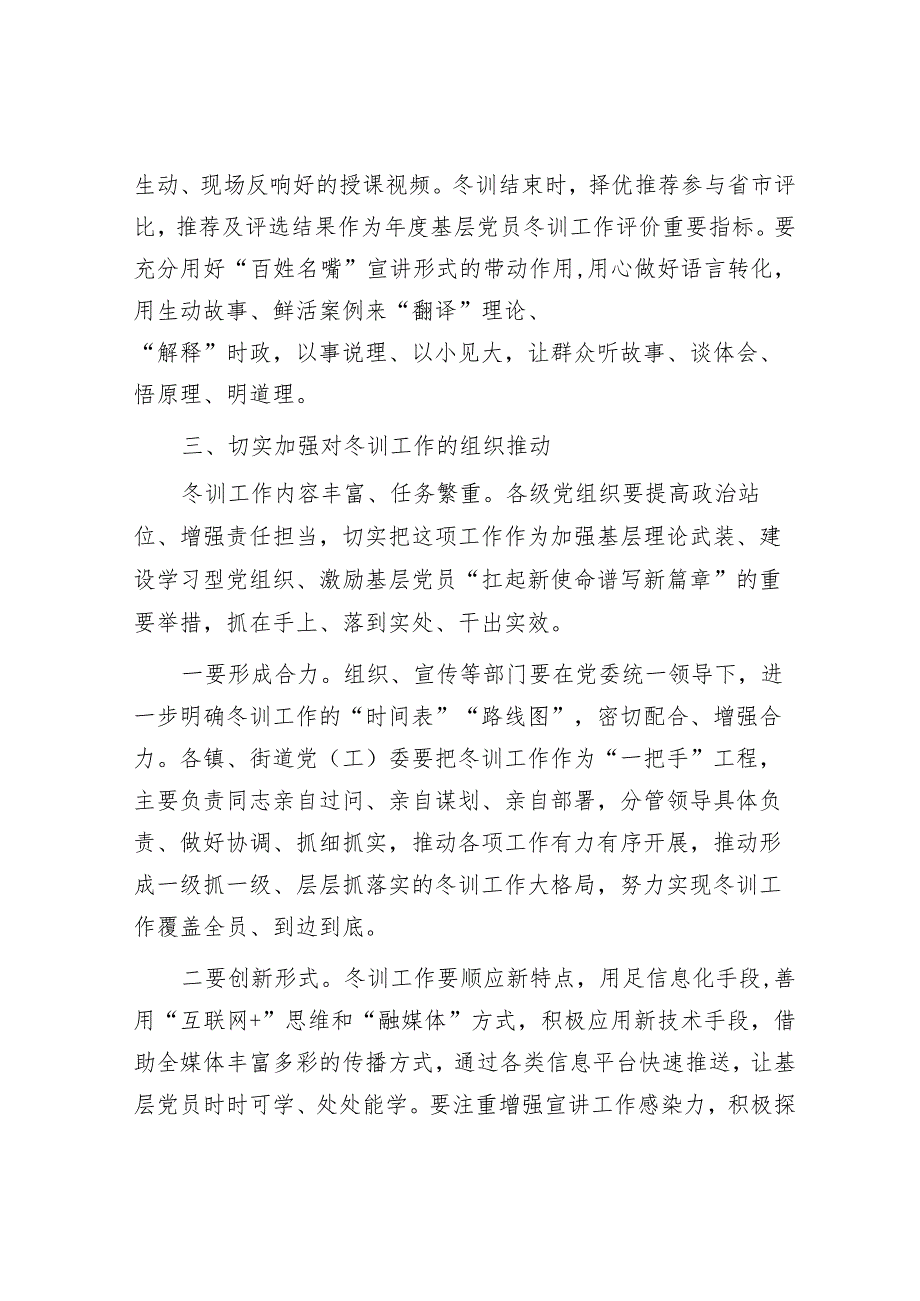 生动、现场反响好的授课视频。冬训结束时，择优推荐参与省市评
比，推荐及评选结果作为年度基层党员冬训工作评价重要指标。要
充分用好“百姓名嘴”宣讲形式的带动作用,用心做好语言转化，
用生动故事、鲜活案例来“翻译”理论、
“解释”时政，以事说理、以小见大，让群众听故事、谈体会、
悟原理、明道理。
三、切实加强对冬训工作的组织推动
冬训工作内容丰富、任务繁重。各级党组织要提高政治站
位、增强责任担当，切实把这项工作作为加强基层理论武装、建
设学习型党组织、激励基层党员“扛起新使命谱写新篇章”的重
要举措，抓在手上、落到实处、干出实效。
一要形成合力。组织、宣传等部门要在党委统一领导下，进
一步明确冬训工作的“时间表”“路线图”，密切配合、增强合
力。各镇、街道党（工）委要把冬训工作作为“一把手”工程，
主要负责同志亲自过问、亲自谋划、亲自部署，分管领导具体负
责、做好协调、抓细抓实，推动各项工作有力有序开展，推动形
成一级抓一级、层层抓落实的冬训工作大格局，努力实现冬训工
作覆盖全员、到边到底。
二要创新形式。冬训工作要顺应新特点，用足信息化手段,善
用“互联网+”思维和“融媒体”方式，积极应用新技术手段，借
助全媒体丰富多彩的传播方式，通过各类信息平台快速推送，让基
层党员时时可学、处处能学。要注重增强宣讲工作感染力，积极探